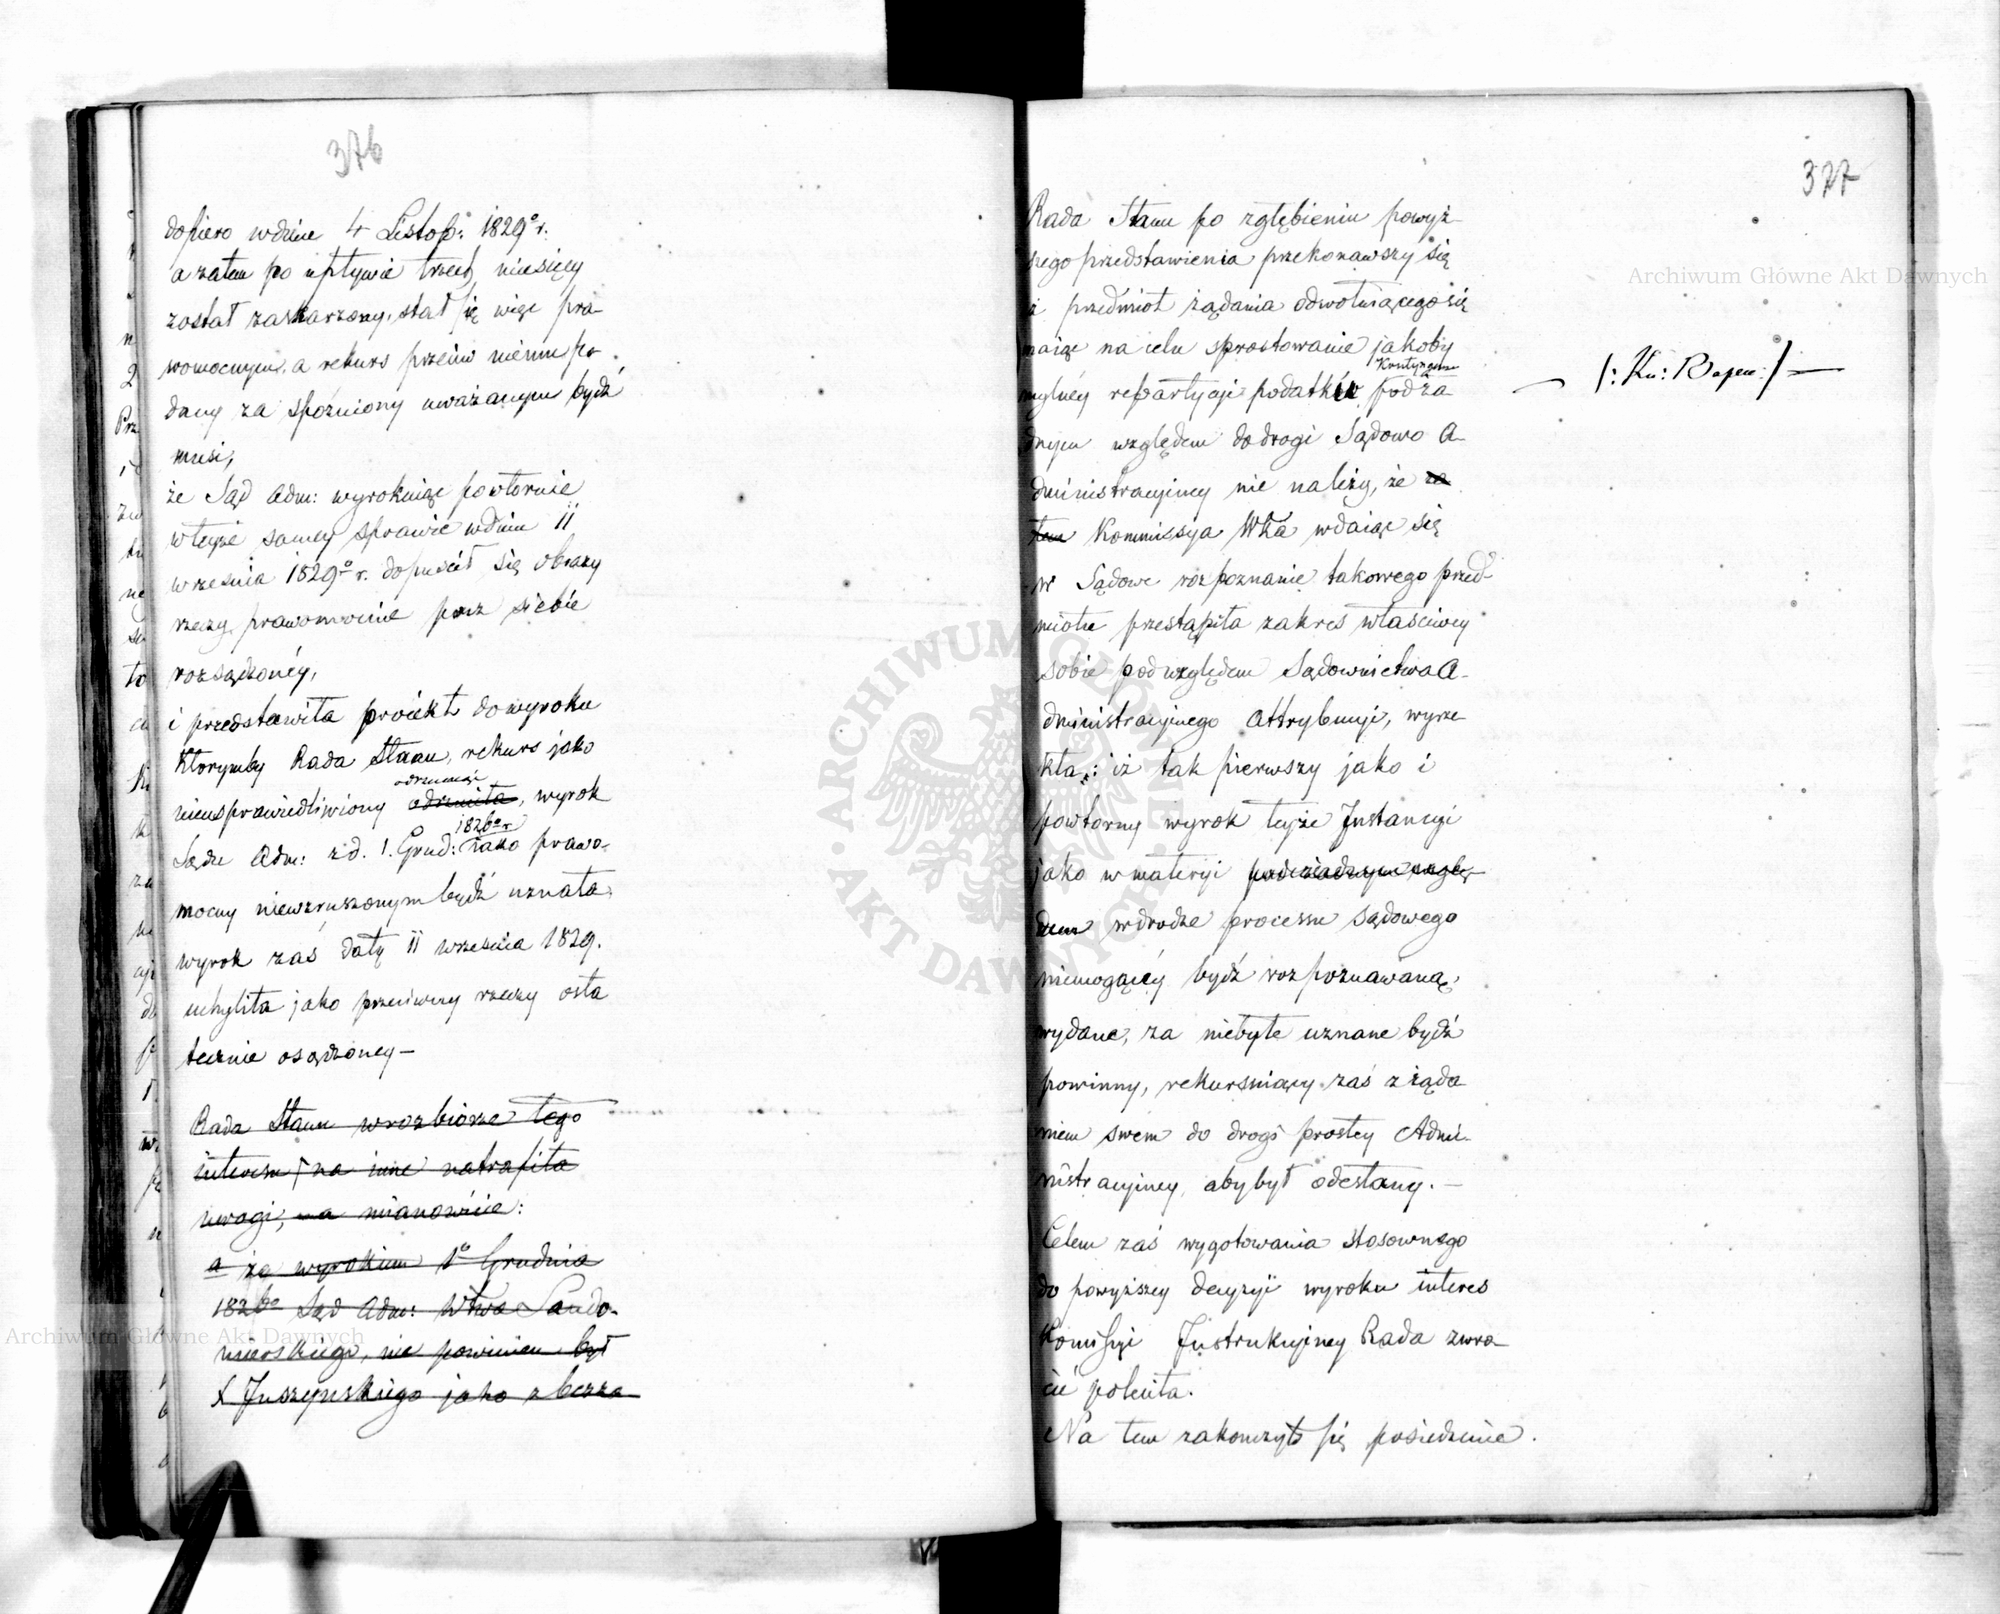 376
dopiero wdniu 4 Listop: 1829º r.
a zatem po upływie trzech miesięcy
został zaskarżony, stał się więc pra-
womocnym, a rekurs przeciw niemu po-
dany za spóźniony uważanym bydź
musi,
że Sąd Adm: wyrokuiąc powtórnie
wteyże samey sprawie wdniu 11
września 1829º r. dopuścił się obrazy
rzeczy prawomocnie przez siebie
rozsądzonéy,
i przedstawiła proiekt do wyroku
którymby Rada Stanu, rekurs jako
odrzucaiąc
nieusprawiedliwiony odrzuciła, wyrok
1826º r
Sądu Adm: z d. 1. Grud: jako prawo-
mocny niewzruszonym bydź uznała
wyrok zaś daty 11 września 1829.
uchyliła jako przeciwny rzeczy osta
tecznie osądzoney —
Rada Stanu wrozbiorze tego
interesu na inne natrafiła
uwagi, a mianowicie:
a że wyrokiem 1º Grudnia
1826º Sąd Adm: Wtwa Sando-
mierskiego, nie powinien był
X Juszyńskiego jako z beza
377
Rada Stanu po zgłębieniu powyż-
szego przedstawienia przekonawszy się
iż przedmiot żądania odwołuiącego się
maiąc na celu sprostowanie jakoby
Kontyngensu
mylnéy repartycyi podatków pod ża-
dnym względem do drogi Sądowo A-
dministracyiney nie należy, że za
tem Kommissya Wka wdaiąc się
w Sądowe rozpoznanie takowego przed-
miotu przestąpiła zakres właściwey
sobie pod względem Sądownictwa A-
dministracyinego Attrybucyi, wyrze
kła: iż tak pierwszy jako i
powtórny wyrok teyże Instancyi
jako w materyi pod żadnym wzglę-
dem wdrodze processu Sądowego
niemogącéy bydź rozpoznawaną,
wydane, za niebyłe uznane bydź
powinny, rekursuiący zaś z żąda
niem swém do drogi prostey Admi-
nistracyiney, aby był odesłany. —
Celem zaś wygotowania stosownego
do powyższey decyzyi wyroku interes
Komissyi Instrukcyiney Rada zwró
cić poleciła.
Na tem zakończyło się posiedzenie.
Archiwum Główne Akt Dawnych
ARCHIWUM GŁÓWNE AKT DAWNYCH
Archiwum Główne Akt Dawnych